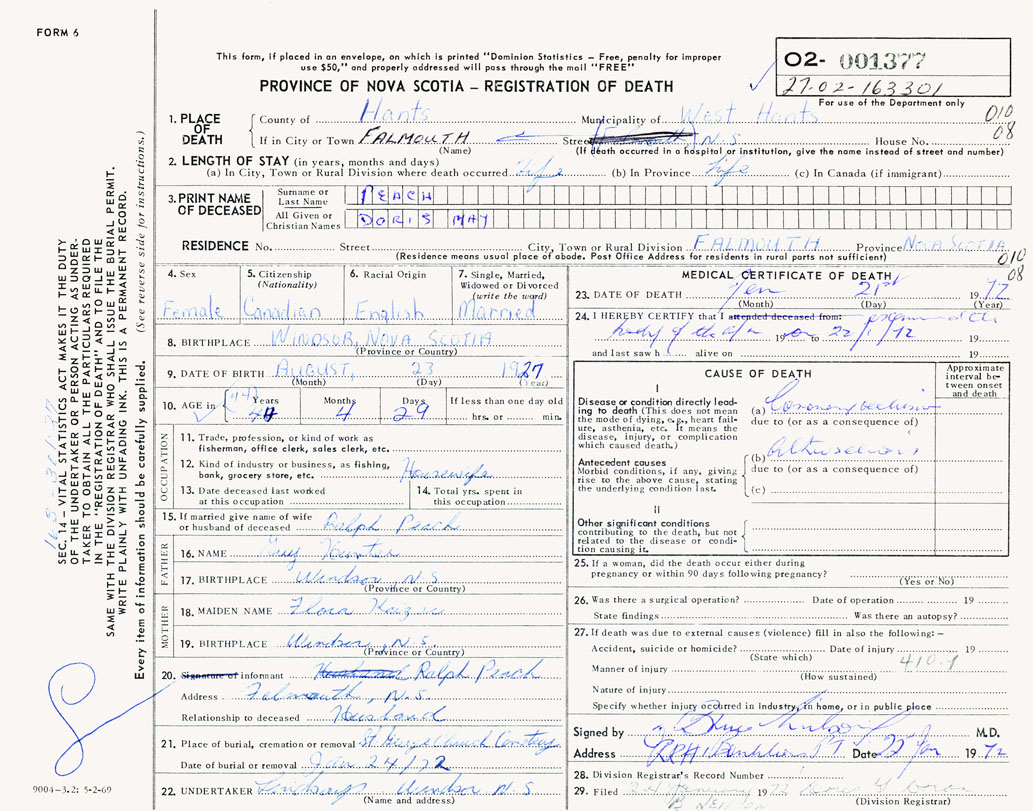 FORM 6
This form, if placed in an envelope, on which is printed "Dominion Statistics – Free, penalty for improper
use $50," and properly addressed will pass through the mail "FREE"
PROVINCE OF NOVA SCOTIA – REGISTRATION OF DEATH
O2- 001377
27-02-163301
For use of the Department only
1. PLACE OF DEATH
County of Hants Municipality of West Hants 010
If in City or Town FALMOUTH Street N.S. House No. 08
(Name) (If death occurred in a hospital or institution, give the name instead of street and number)
2. LENGTH OF STAY (in years, months and days)
(a) In City, Town or Rural Division where death occurred Life (b) In Province Life (c) In Canada (if immigrant)
3. PRINT NAME OF DECEASED
Surname or Last Name PEACH
All Given or Christian Names DORIS MAY
RESIDENCE No. Street City, Town or Rural Division FALMOUTH Province NOVA SCOTIA
(Residence means usual place of abode. Post Office Address for residents in rural parts not sufficient) 010
08
4. Sex Female
5. Citizenship (Nationality) Canadian
6. Racial Origin English
7. Single, Married, Widowed or Divorced (write the word) Married
8. BIRTHPLACE WINDSOR, NOVA SCOTIA
(Province or Country)
9. DATE OF BIRTH AUGUST, 23 1927
(Month) (Day) (Year)
10. AGE in Years 44 Months 4 Days 29 If less than one day old
hrs. or min.
OCCUPATION
11. Trade, profession, or kind of work as
fisherman, office clerk, sales clerk, etc.
12. Kind of industry or business, as fishing,
bank, grocery store, etc. Housewife
13. Date deceased last worked
at this occupation
14. Total yrs. spent in
this occupation
15. If married give name of wife
or husband of deceased Ralph Peach
FATHER
16. NAME Hunter
17. BIRTHPLACE Windsor, N.S.
(Province or Country)
MOTHER
18. MAIDEN NAME Flora
19. BIRTHPLACE Windsor, N.S.
(Province or Country)
20. Signature of informant Husband Ralph Peach
Address Falmouth, N.S.
Relationship to deceased Husband
21. Place of burial, cremation or removal Church Cemetery
Date of burial or removal Jan 24/72
22. UNDERTAKER Windsor NS
(Name and address)
MEDICAL CERTIFICATE OF DEATH
23. DATE OF DEATH Jan 21st 1972
(Month) (Day) (Year)
24. I HEREBY CERTIFY that I attended deceased from: examined the
body of the 19 on to 22/1/72
and last saw h alive on 19
CAUSE OF DEATH
Approximate interval between onset and death
I
Disease or condition directly leading
to death (This does not mean
the mode of dying, e.g., heart failure,
asthenia, etc. It means the
disease, injury, or complication
which caused death.)
(a) Coronary occlusion
due to (or as a consequence of)
Antecedent causes
Morbid conditions, if any, giving
rise to the above cause, stating
the underlying condition last.
(b)
due to (or as a consequence of)
(c)
II
Other significant conditions
contributing to the death, but not
related to the disease or condition
causing it.
25. If a woman, did the death occur either during
pregnancy or within 90 days following pregnancy?
(Yes or No)
26. Was there a surgical operation? Date of operation 19
State findings Was there an autopsy?
27. If death was due to external causes (violence) fill in also the following: –
Accident, suicide or homicide? Date of injury 19
(State which) 410.9
Manner of injury
(How sustained)
Nature of injury
Specify whether injury occurred in industry, in home, or in public place
Signed by M.D.
Address Date 22 Jan 1972
28. Division Registrar's Record Number
29. Filed 24 January 1972
(Division Registrar)
SEC. 14 – VITAL STATISTICS ACT MAKES IT THE DUTY
OF THE UNDERTAKER OR PERSON ACTING AS UNDERTAKER
TO OBTAIN ALL THE PARTICULARS REQUIRED
IN THE "REGISTRATION OF DEATH" AND TO FILE THE
SAME WITH THE DIVISION REGISTRAR WHO SHALL ISSUE THE BURIAL PERMIT.
WRITE PLAINLY WITH UNFADING INK. THIS IS A PERMANENT RECORD.
Every item of information should be carefully supplied. (See reverse side for instructions.)
9004-3.2: 5-2-69